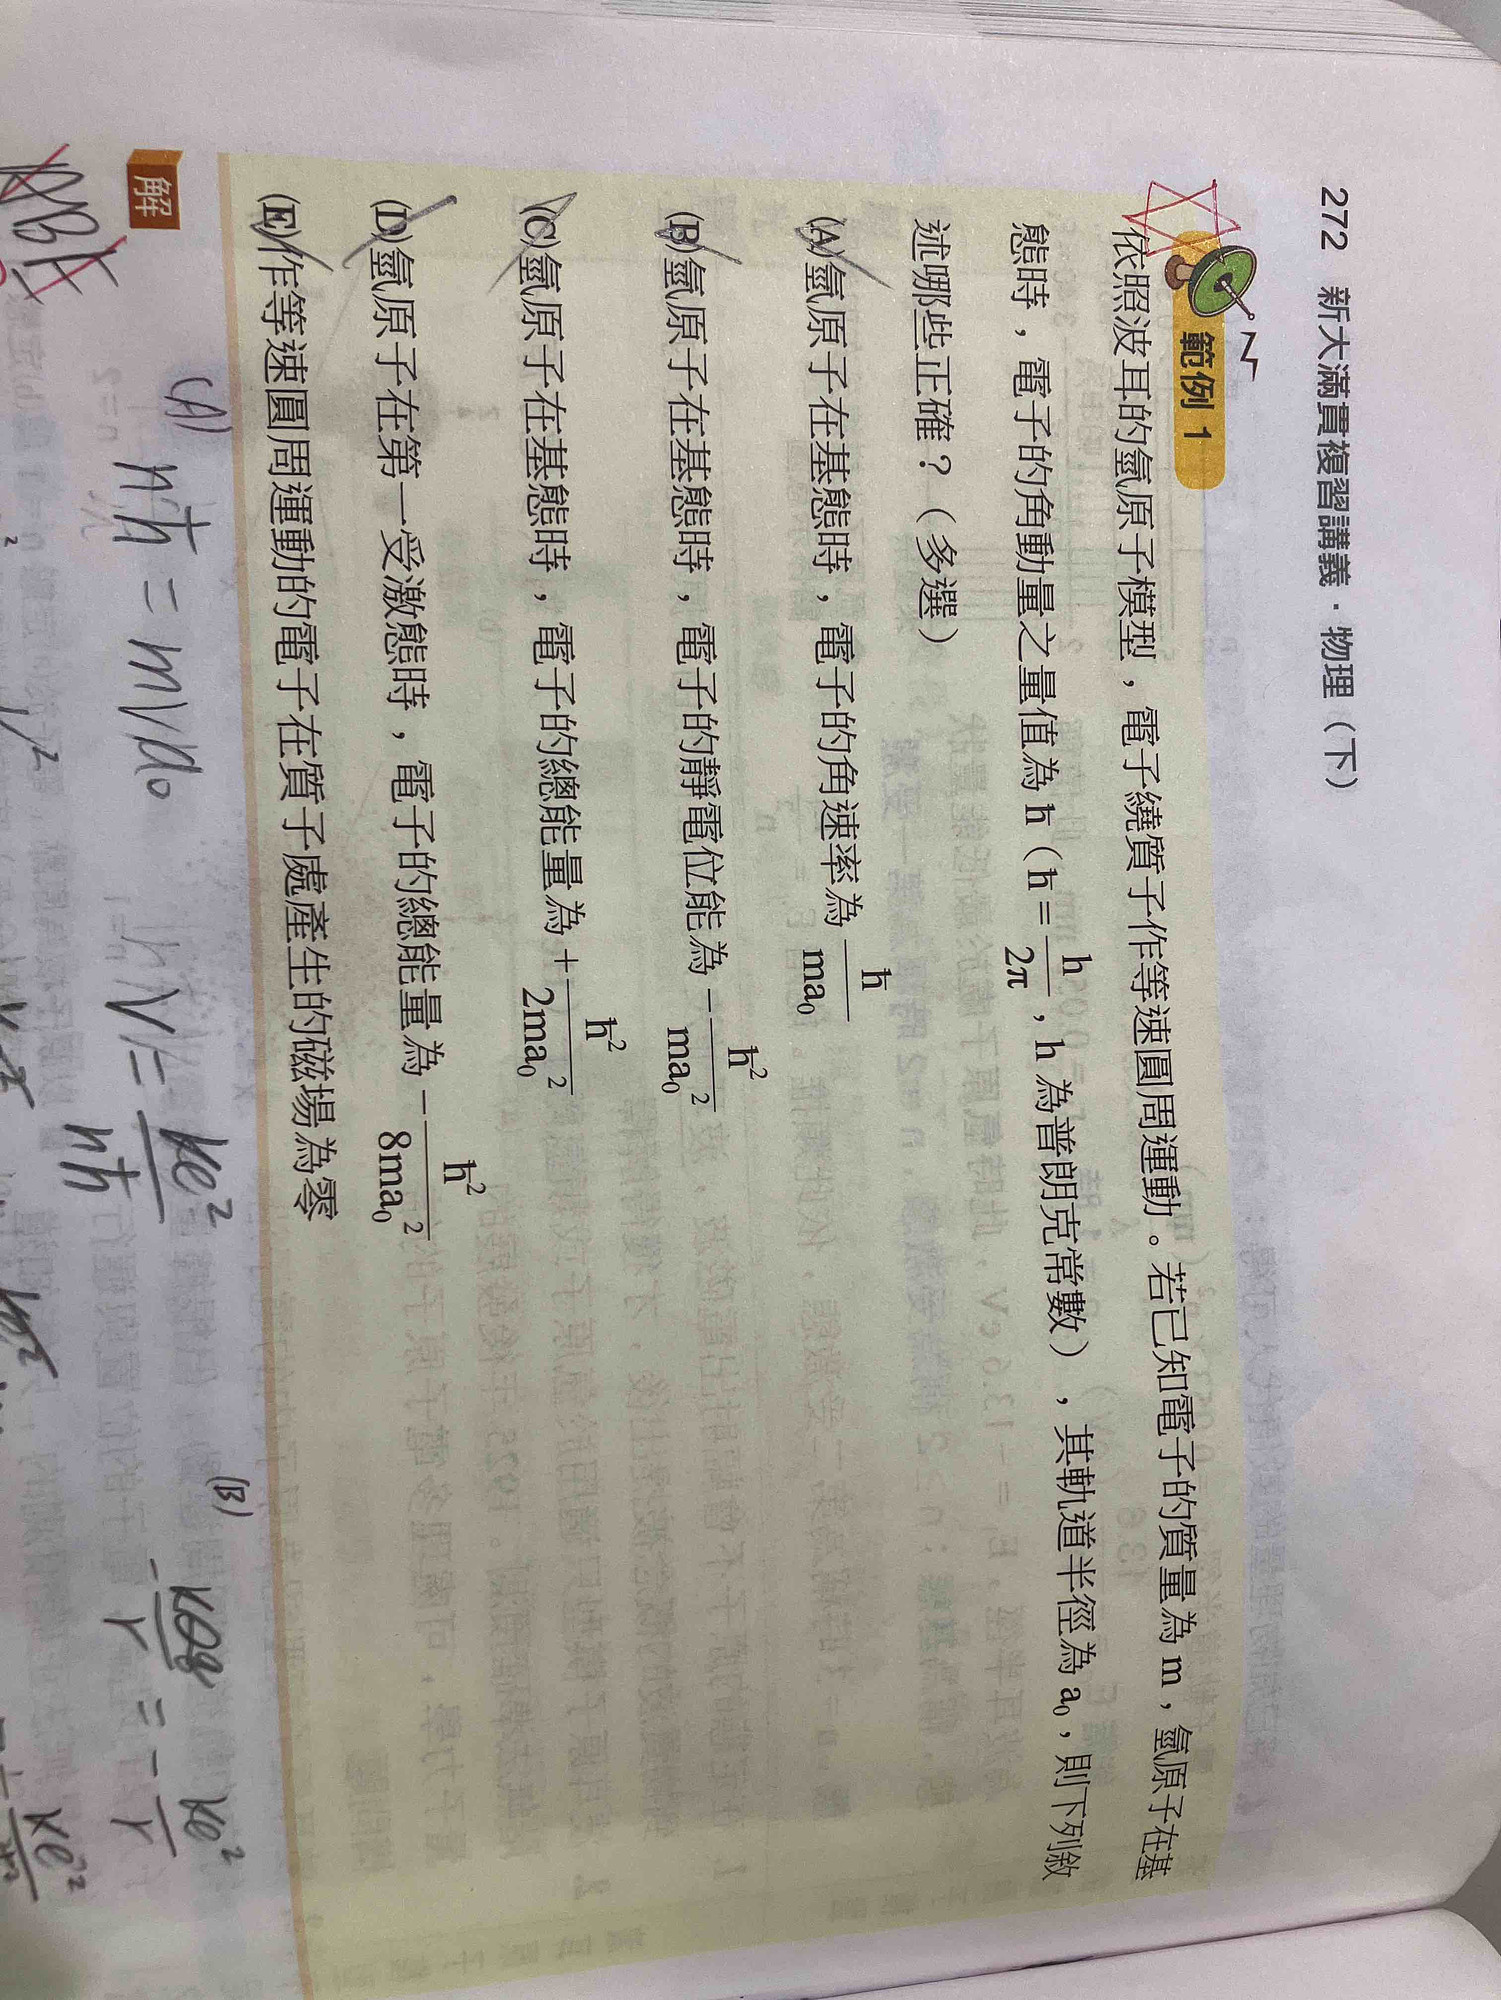 272 新大滿貫複習講義．物理（下）
範例 1
依照波耳的氫原子模型，電子繞質子作等速圓周運動。若已知電子的質量為 m，氫原子在基
態時，電子的角動量之量值為 ħ（ħ = h/2π，h 為普朗克常數），其軌道半徑為 a₀，則下列敘
述哪些正確？（多選）
(A)氫原子在基態時，電子的角速率為 ħ/ma₀
(B)氫原子在基態時，電子的靜電位能為 −ħ²/ma₀²
(C)氫原子在基態時，電子的總能量為 +ħ²/2ma₀²
(D)氫原子在第一受激態時，電子的總能量為 −ħ²/8ma₀²
(E)作等速圓周運動的電子在質子處產生的磁場為零
解
(A)
nħ = mva₀
V = ke²/nħ
(B)
−kQq/r = −ke²/r